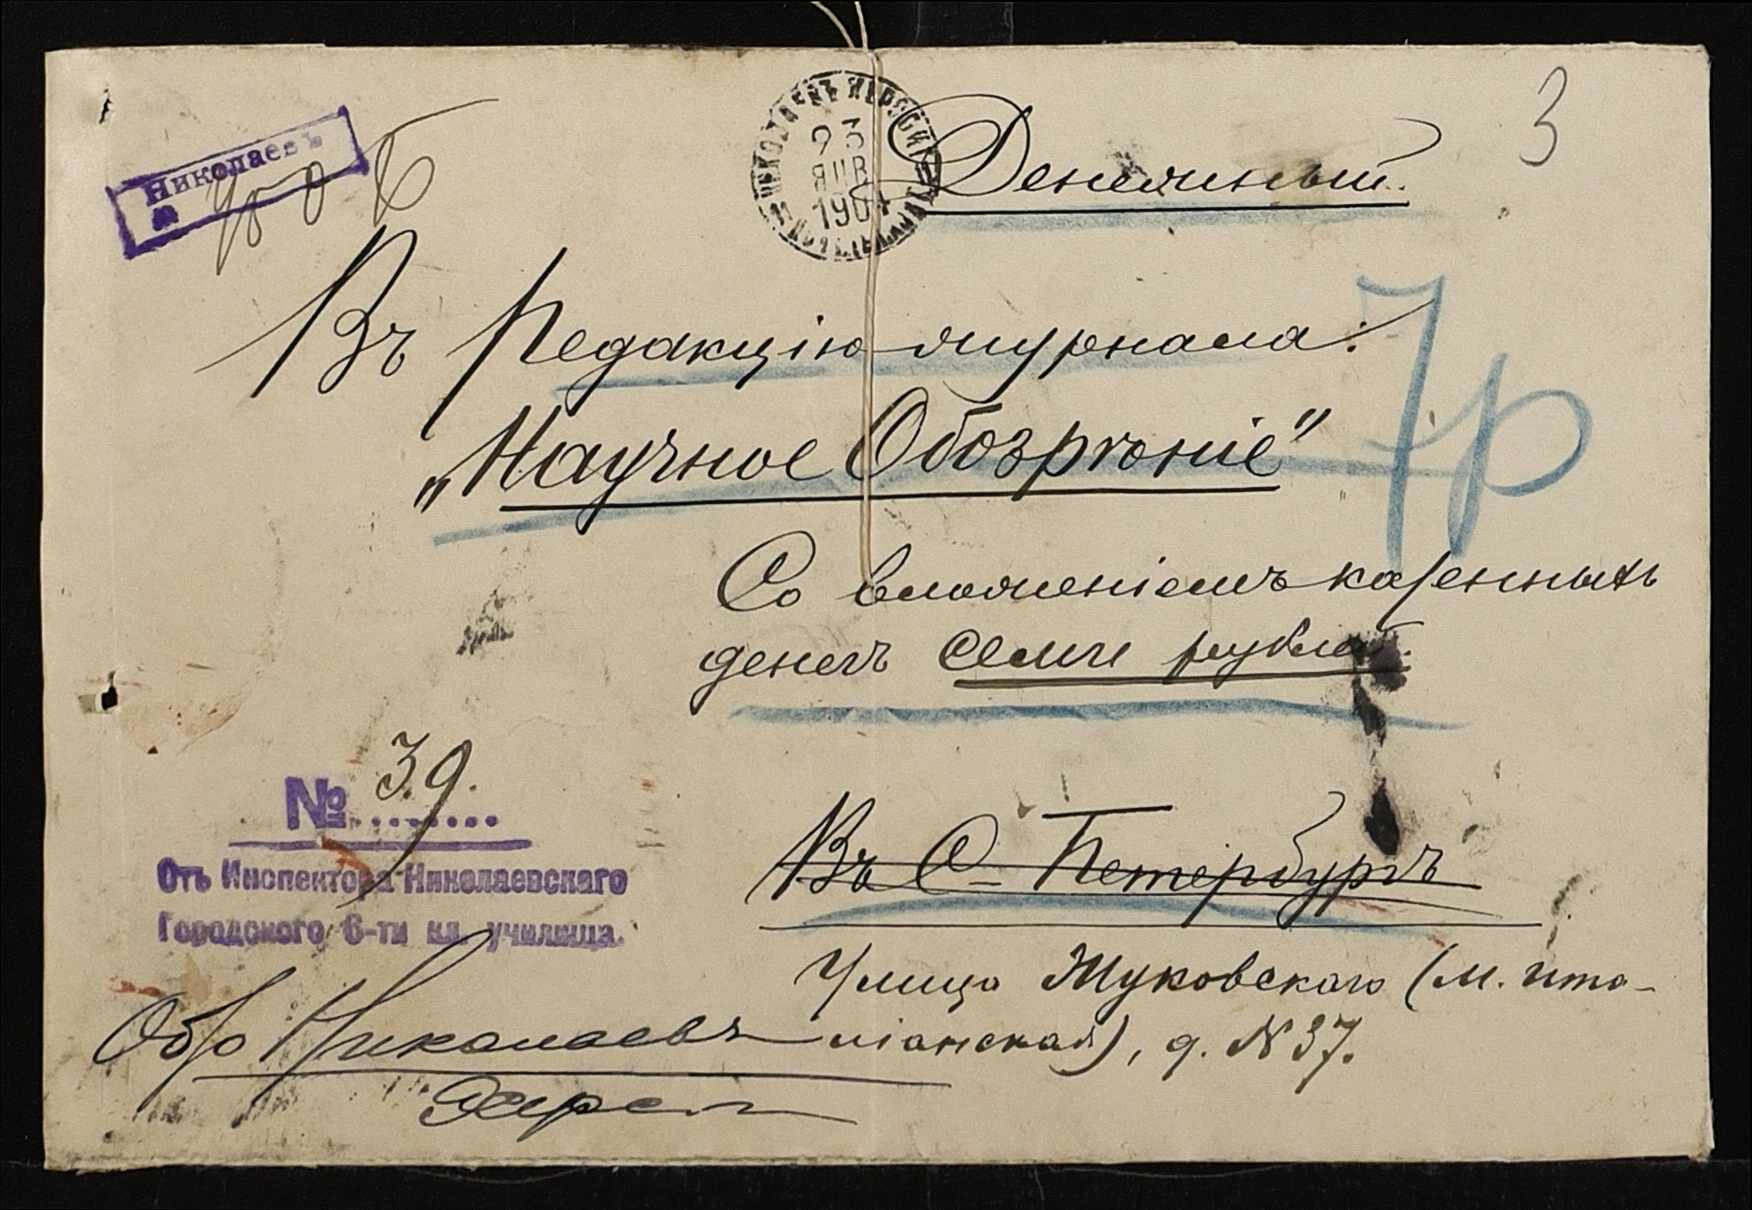 3
Николаевъ
№ 450 Б
НИКОЛАЕВЪ ХЕРСОН
23
ЯНВ
1904
Денежный.
Въ Редакцію журнала:
„Научное Обозрѣніе"
7р
Со вложеніемъ казенныхъ
денегъ семи рублей.
№ 39.
Отъ Инспектора Николаевскаго
Городского 6-ти кл. училища.
Въ С-Петербургъ
Улица Жуковскаго (М. Ита-
ліанская), д. № 37.
Николаевъ
Херсон